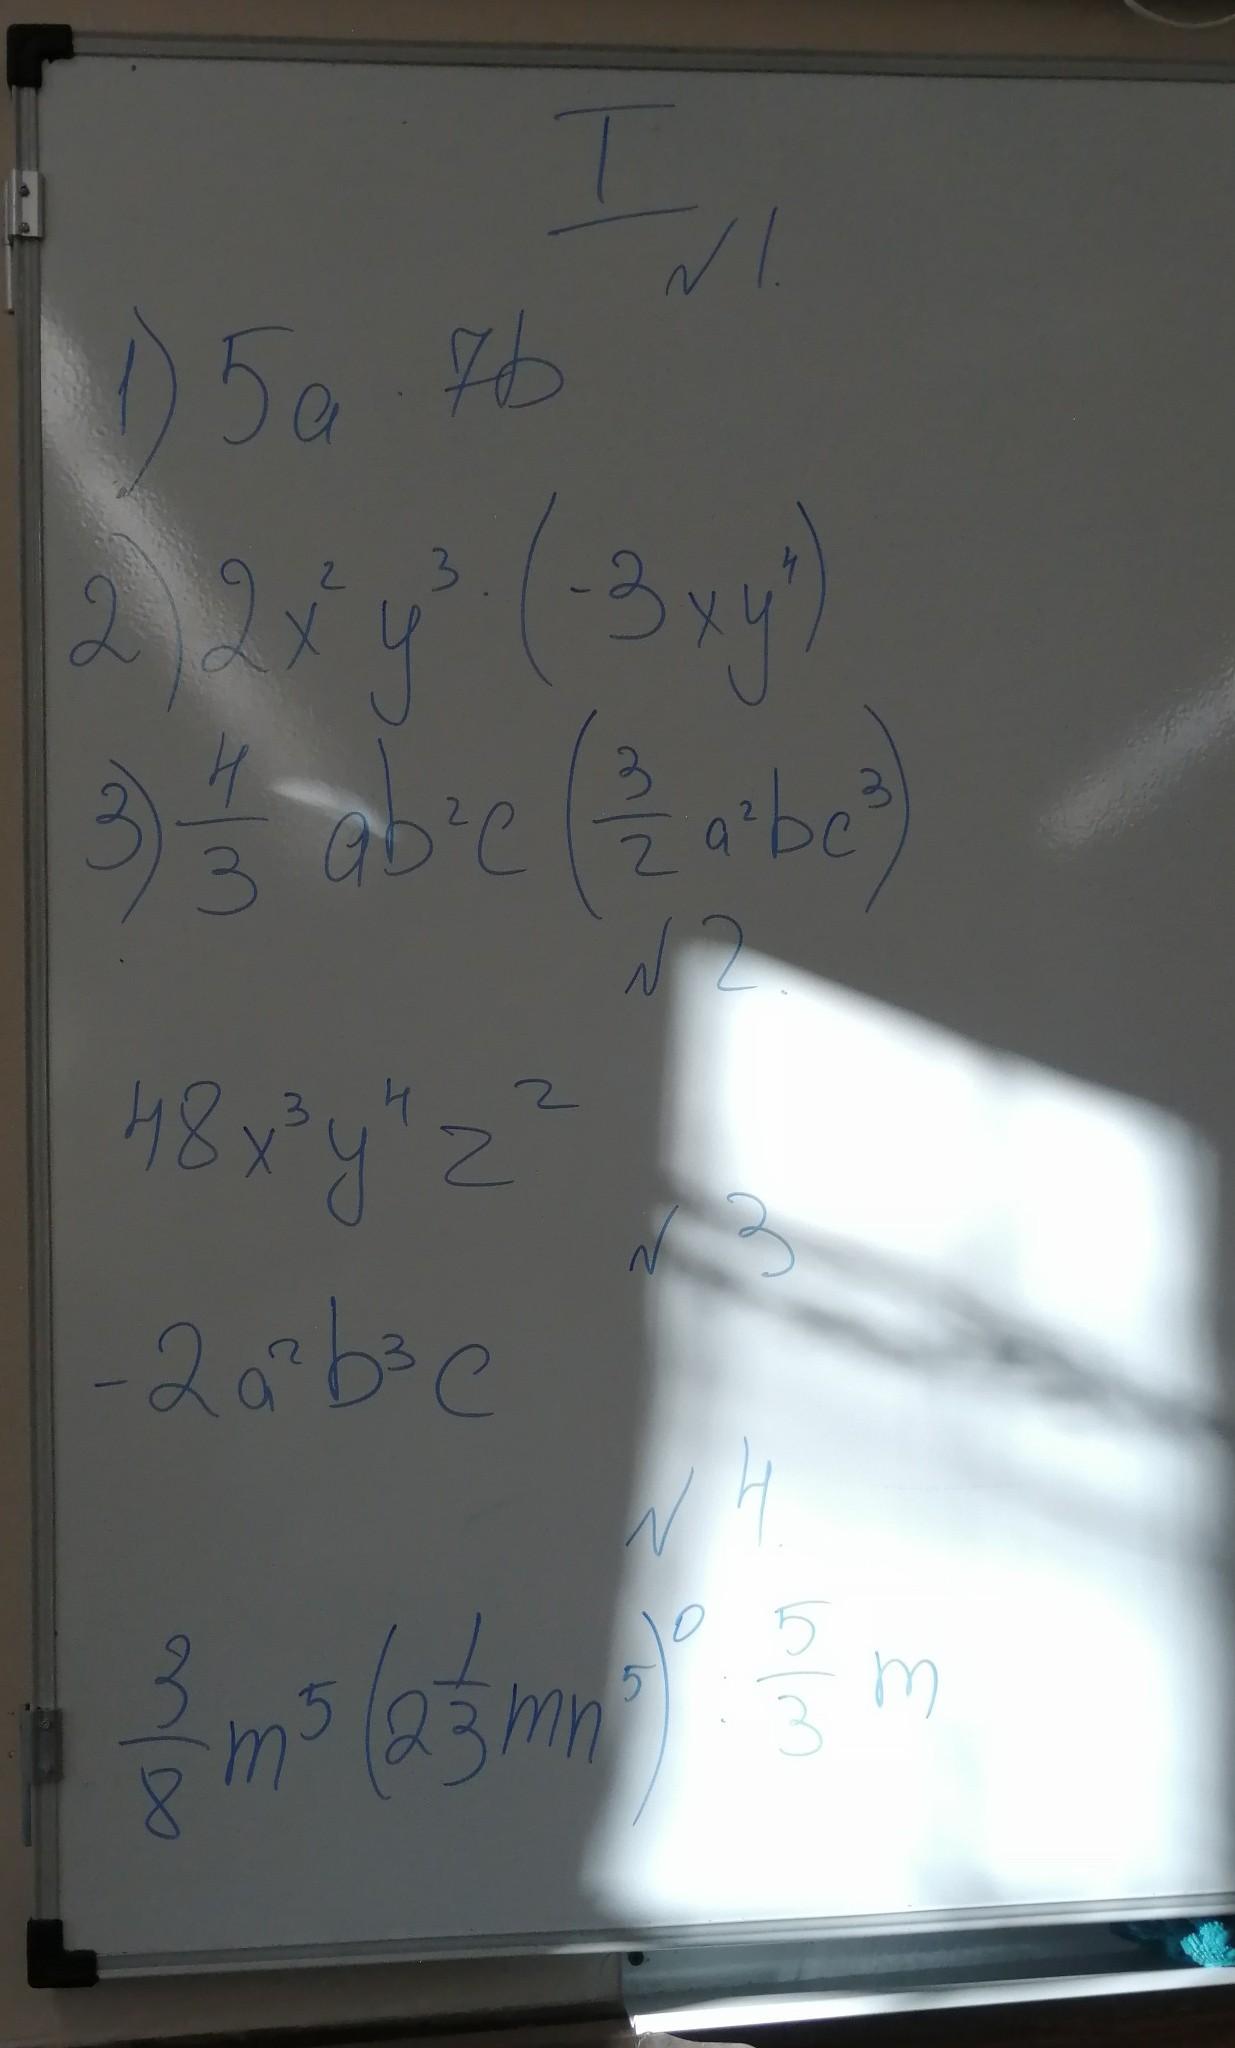 I
№1.
1) 5a · 7b
2) 2x²y³ · (-3xy⁴)
3) 4/3 ab²c (3/2 a²bc³)
№2.
48x³y⁴z²
№3
-2a²b³c
№4.
3/8 m⁵ (2 1/3 mn⁵)⁰ : 5/3 m